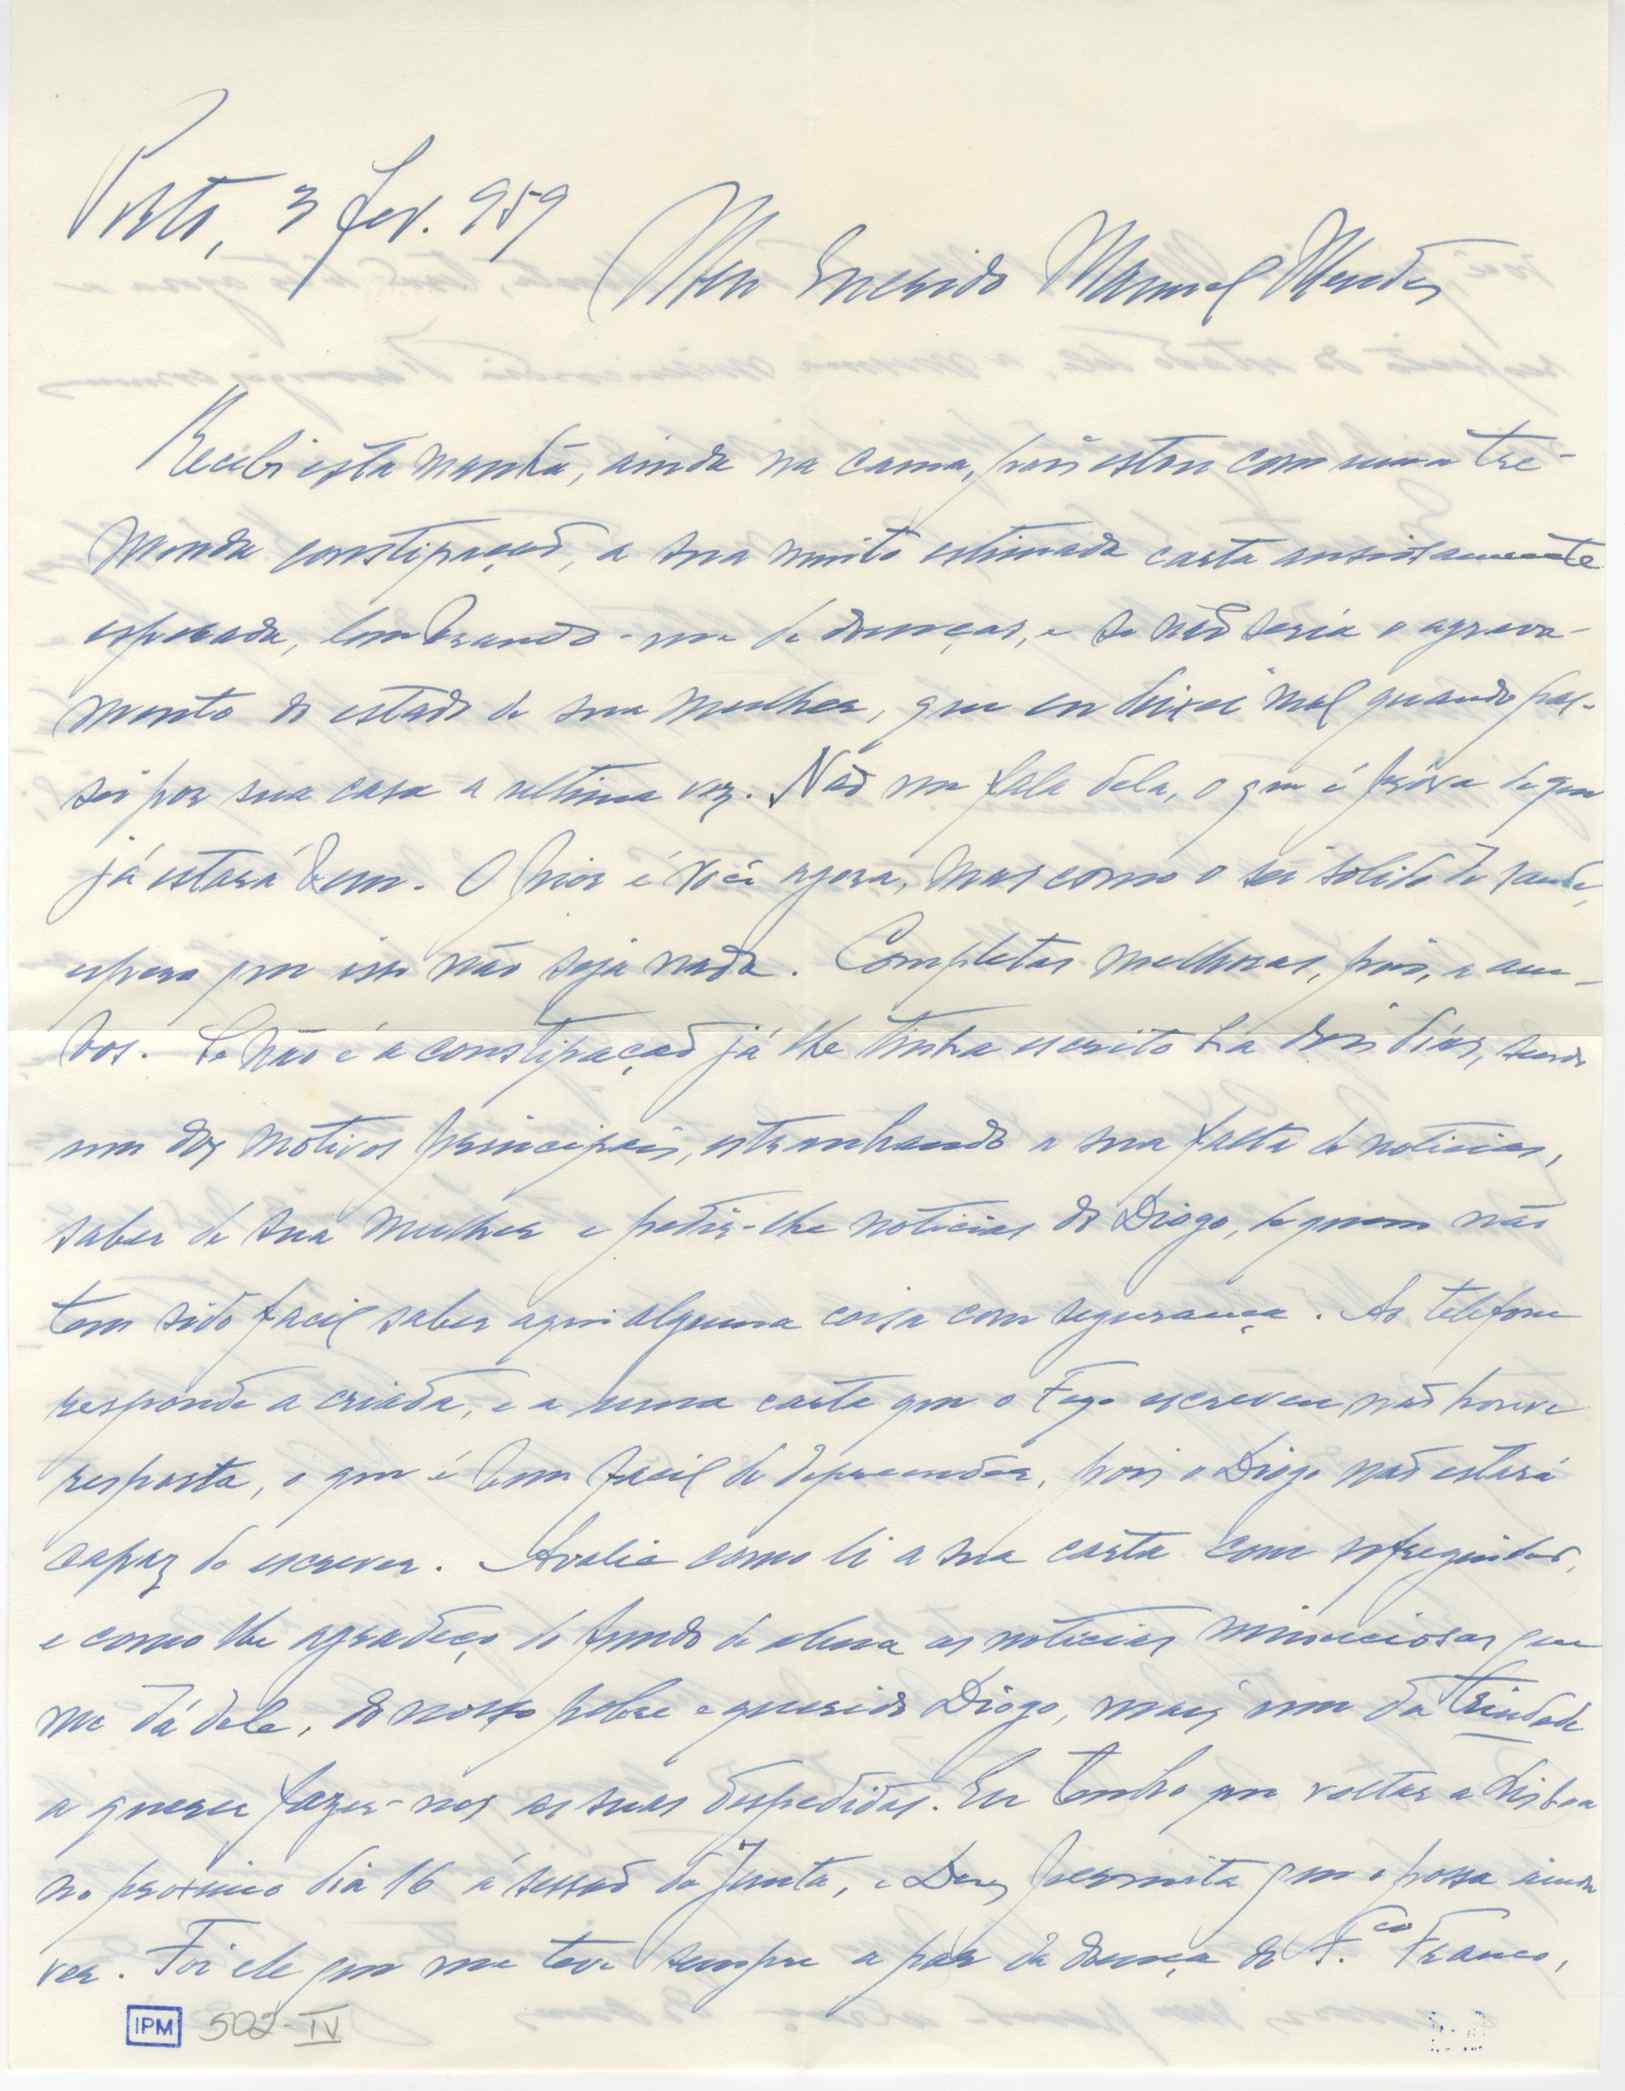 Porto, 3 fev. 959
Meu Querido Manuel Mendes
Recebi esta manhã, ainda na cama, pois estou com uma tre-
menda constipação, a sua muito estimada carta ansiosamente
esperada, lembrando-me de doenças, e se não seria o agrava-
mento do estado de sua mulher, que eu deixei mal quando pas-
sei por sua casa a ultima vez. Não me fala dela, o que é próva de que
já estará bem. O pior é você agora, mas como o sei solido de saude,
espero que isso não seja nada. Completas melhoras, pois, a am-
bos. Se não é a constipação já lhe tinha escrito ha dois dias, sendo
um dos motivos principais, estranhando a sua falta de noticias,
saber de sua mulher e pedir-lhe noticias do Diogo, de quem não
tem sido facil saber aqui alguma coisa com segurança. Ao telefone
responde a criada, e a uma carta que o escreveu não houve
resposta, o que é bem facil de depreender, pois o Diogo não estará
capaz de escrever. Avalie como li a sua carta com sofreguidão,
e como lhe agradeço do fundo da alma as noticias minuciosas que
me dá dele, do nosso pobre e querido Diogo, mais um da trindade
a querer fazer-nos as suas despedidas. Eu tenho que voltar a Lisboa
no proximo dia 16 á sessão da Junta, e Deus permita que o possa ainda
ver. Foi ele que me teve sempre a par da doença do F.co Franco,
IPM 502-IV